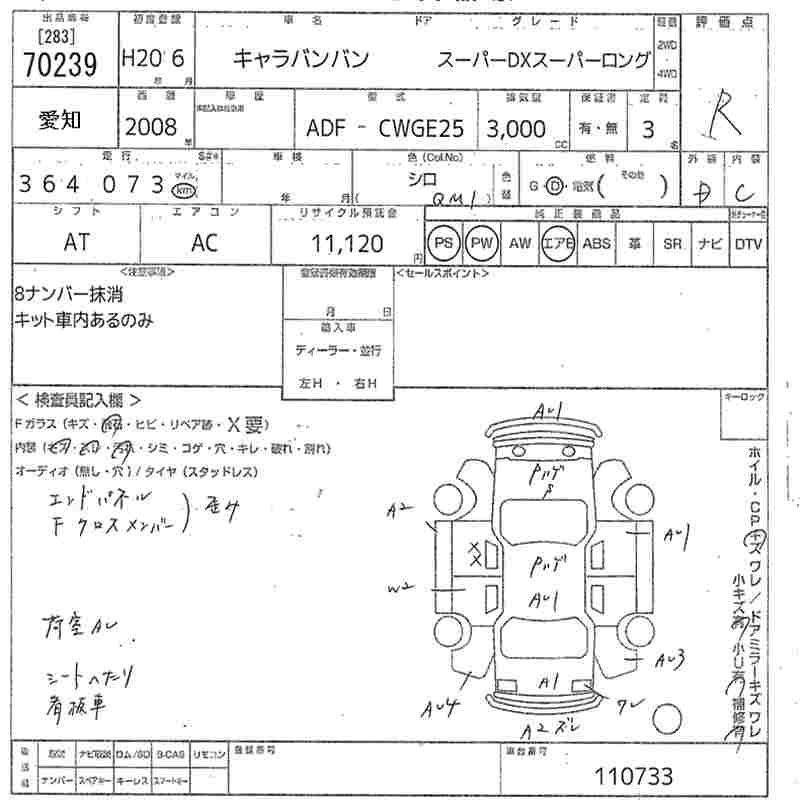 出品番号 初度登録 車名 ドア グレード 駆動 評価点
[283]
70239 H20 6 キャラバンバン スーパーDXスーパーロング 2WD 4WD R
年 月
愛知 西暦 車歴 型式 排気量 保証書 定員
2008年 ADF - CWGE25 3,000 CC 有・無 3名
走行 車検 色(Col.No) 色替 燃料 外装 内装
364073 マイル km 年 月 シロ QM1 G・D・電気( その他 ) D C
シフト エアコン リサイクル預託金 純正装備品
AT AC 11,120円 PS PW AW エアB ABS 革 SR ナビ DTV
<注意事項> <セールスポイント>
8ナンバー抹消
キット車内あるのみ
月 日
輸入車
ディーラー・並行
左H ・ 右H
< 検査員記入欄 > キーロック
Fガラス(キズ・飛石・ヒビ・リペア跡・X要)
内装(ヨゴレ・シミ・コゲ・穴・キレ・破れ・割れ)
オーディオ(無し・穴)/タイヤ(スタッドレス)
エンドパネル
Fクロスメンバー ) 歪み
荷室AU
シートへたり
看板車
AU1
Pハゲ
A2
XX
AU1
Pハゲ
W2
AU1
AU3
A1
AU4
ワレ
A2 ズレ
ホイル・CPキズワレ/ドアミラーキズワレ
小キズ有 小U有 補修有
後送品 取説 ナビ取説 ロム/SD B-CAS リモコン 登録番号 車台番号
ナンバー スペアキー キーレス スマートキー 110733